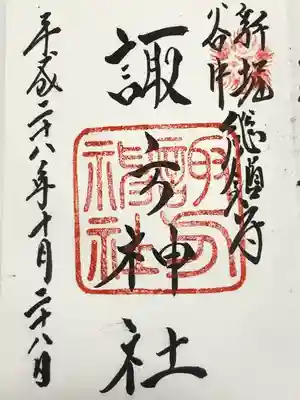 新堀
谷中總鎮守
諏方神社
平成二十八年十月二十八日